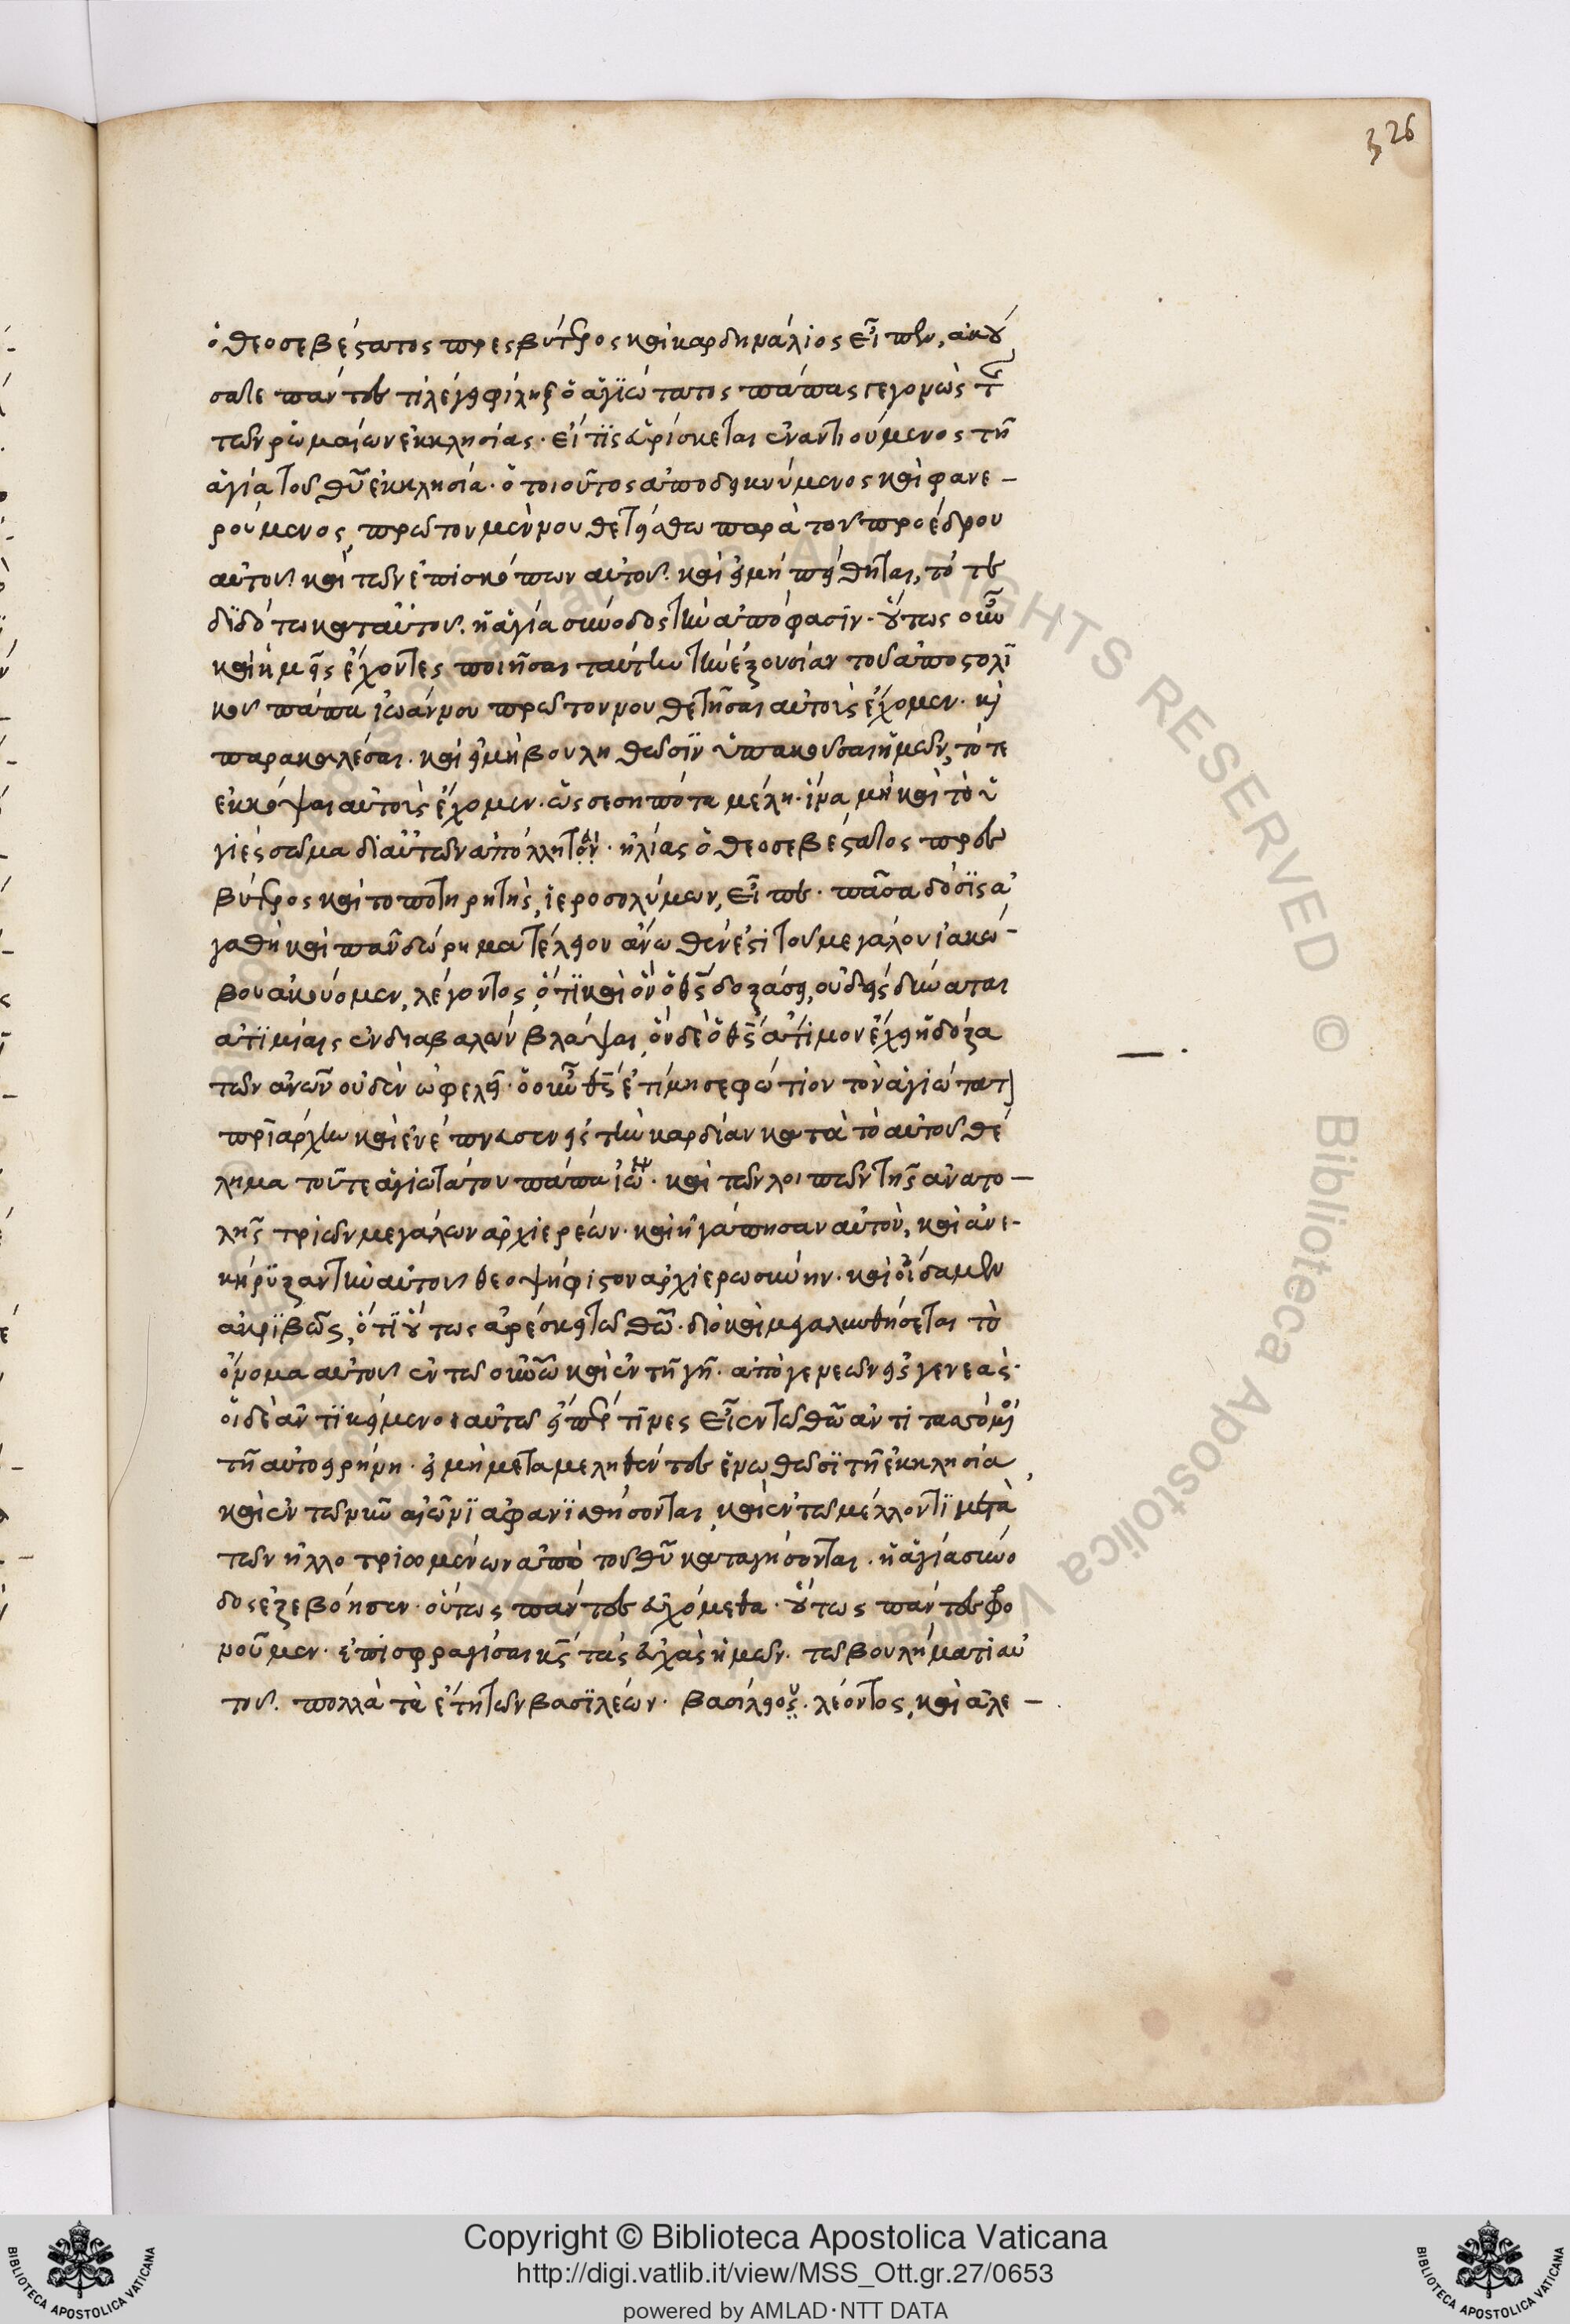 326
ὁ θεοσεβέστατος πρεσβύτερος καὶ καρδηνάλιος εἶπεν, ἀκού
σατε πάντες τί λέγει φίληξ ὁ ἁγιώτατος πάπας γεγονὼς τῆς
τῶν ῥωμαίων ἐκκλησίας. εἴ τις εὑρίσκεται ἐναντιούμενος τῆ
ἁγία τοῦ θῦ ἐκκλησία. ὁ τοιοῦτος ἀποδεικνύμενος καὶ φανε –
ρούμενος, πρῶτον μὲν νουθετείσθω παρὰ τοῦ προέδρου
αὐτοῦ καὶ τῶν ἐπισκόπων αὐτοῦ. καὶ εἰ μὴ πείθηται, τότε
διδότω κατ' αὐτοῦ. ἡ ἁγία σύνοδος τὴν ἀπόφασιν. οὕτως οὖν
καὶ ἡμεῖς ἔχοντες ποιῆσαι ταύτην τὴν ἐξουσίαν τοῦ ἀποστολι
κοῦ πάπα ἰωάννου πρῶτον νουθετῆσαι αὐτοὺς ἔχομεν. καὶ
παρακαλέσαι. καὶ εἰ μὴ βουληθῶσιν ὑπακοῦσαι ἡμῶν, τότε
ἐκκόψαι αὐτοὺς ἔχομεν. ὡς σεσηπότα μέλη. ἵνα μὴ καὶ τὸ ὑ
γιὲς σῶμα δι' αὐτῶν ἀπόλληται. ἠλίας ὁ θεοσεβέστατος πρεσ
βύτερος καὶ τοποτηρητὴς, ἱεροσολύμων, εἶπε. πᾶσα δόσις ἀ
γαθὴ καὶ πᾶν δώρημα τέλειον ἄνωθέν ἐστι τοῦ μεγάλου ἰακώ –
βου ἀκούομεν, λέγοντος, ὅτι καὶ ὃν ὁ θς δοξάσει, οὐδεὶς δύναται
ἀτιμίαις ἐνδιαβαλεῖν βλάψαι, ὃν δὲ ὁ θς ἄτιμον ἔχει ἡ δόξα
τῶν ἀνῶν οὐδὲν ὠφελεῖ. ὁ οὖν θς ἐτίμησε φώτιον τὸν ἁγιώτατον
πριάρχην καὶ ἐνέπνευσεν εἰς τὴν καρδίαν κατὰ τὸ αὐτοῦ θέ
λημα τοῦ τε ἁγιωτάτου πάπα ἰωάννου. καὶ τῶν λοιπῶν τῆς ἀνατο –
λῆς τριῶν μεγάλων ἀρχιερέων. καὶ ἠγάπησαν αὐτὸν, καὶ ἀνε –
κήρυξαν τὴν αὐτοῦ θεοψήφιστον ἀρχιερωσύνην. καὶ οἴδαμεν
ἀκριβῶς, ὅτι οὕτως ἀρέσκει τῶ θῶ. διὸ καὶ μεγαλυνθήσεται τὸ
ὄνομα αὐτοῦ ἐν τῶ οὐνῶ καὶ ἐν τῆ γῆ. ἀπὸ γενεῶν εἰς γενεάς.
οἱ δὲ ἀντικείμενοι αὐτῶ εἴπερ τινες εἰσὶν τῶ θῶ ἀντιτασσόμενοι
τῆ αὐτοῦ εἰρήνη. εἰ μὴ μεταμεληθέντες ἑνωθῶσι τῆ ἐκκλησία,
καὶ ἐν τῶ νῦν αἰῶνι ἀφανισθήσονται, καὶ ἐν τῶ μέλλοντι μετὰ
τῶν ἠλλοτριωμένων ἀπὸ τοῦ θῦ καταγήσονται. ἡ ἁγία σύνο
δος ἐξεβόησεν. οὕτως πάντες εὐχόμεθα. οὕτως πάντες φρο
νοῦμεν. ἐπισφραγίσαι κς τὰς εὐχὰς ἡμῶν. τῶ βουλήματι αὐ
τοῦ. πολλὰ τὰ ἔτη τῶν βασιλέων. βασιλείου. λέοντος, καὶ ἀλε –
Copyright © Biblioteca Apostolica Vaticana
http://digi.vatlib.it/view/MSS_Ott.gr.27/0653
powered by AMLAD·NTT DATA
BIBLIOTECA APOSTOLICA VATICANA
BIBLIOTECA APOSTOLICA VATICANA